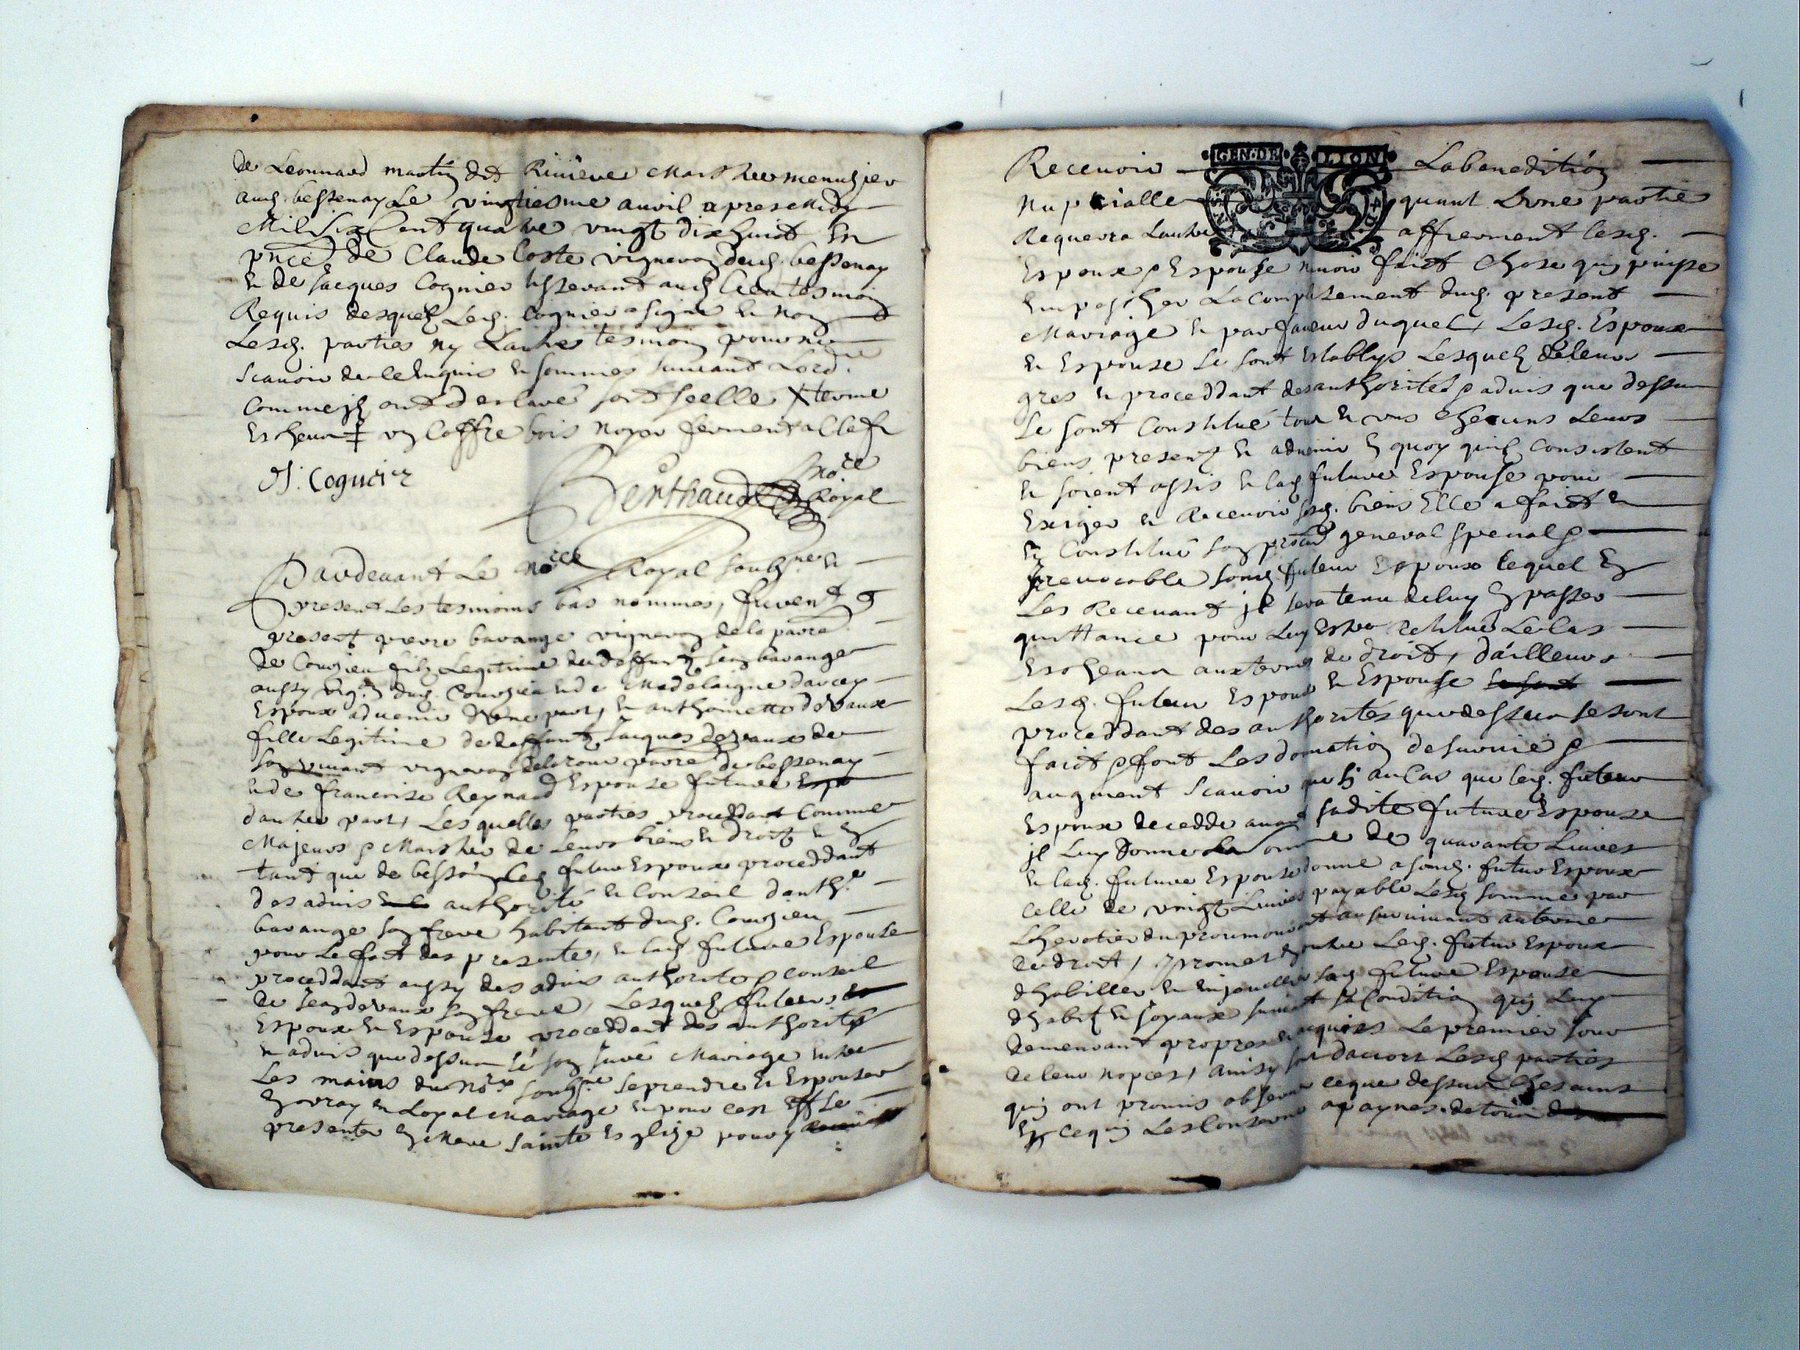 de Leonnard martin dit Riviere Marchee menuzier
aud. bessenay Le vingtiesme auril apres midy
Mil Six Cent quatre vingt dix huict En
pnce de Claude Coste vigneron dud. bessenay
Et de Jacques Cognier tisserant aud. lieu tesmoin
Requis desquelz Led. Cognier a signé Et non
Lesd. parties ny Lautre tesmoin pour ne
scauoir de ce Enquis Et sommes suiuant Lord.
Comme ilz ont declaré sont seelle terme
Escheu un Coffre bois noyer ferment a Clefz
J. Cogniez
Berthaud nore Royal
Pardeuant Le nore Royal soubsne Et
present Les tesmoins bas nommes, furent
present pierre barange vigneron de la parre
de Courzieu filz Legitime de deffunt Jean barange
aussy vig. dud. Courzieu Et de Madelaigne darcey
Espoux aduenir d'Une part, Et anthoinette deVaux
fille Legitime de deffunt Jacques devaux de
son viuant vigneron parre de bessenay
Et de francoise Reynard Espouse future
dautre part, Lesquelles parties procedant Comme
Majeurs Maistre de Leurs biens Et droitz Et En
tant que de besoin Led. futur Espoux proceddant
des aduis authorité Et Conseil danthe
barange son frere habitant dud. Courzieu
pour Le fait des presente, Et lad. future Espouse
proceddant aussy des aduis authorité Conseil
de Jean devaux son frere, Lesquelz futurs
Espoux Et Espouse proceddant des authorités
Et aduis que dessus se son juré Mariage Entre
Les mains du Nore soubsne se prendre Et Espouser
En vray Et Loyal Mariage Et pour cest Eff Se
presenter En Nostre sainte Esglize pour y
GEN. DE LION
Receuoir La beneditión
Nuptialle quant L'vne partie
Requerra Lautre affirment lesd.
Espoux Espouse nauoir faict Chose qui puisse
Empescher Lacomplisement dud. present
Mariage Et par faueur duquel, Lesd. Espoux
Et Espouse se sont Establys Lesquelz de leur
gres Et proceddant des authorités aduis que dessus
se sont Constitué tous Et vns Chacuns Leurs
biens present Et aduenir En quoy quilz Consistent
Et soient assis Et lad. future Espouse pour
Exiger Et Receuoir sesd. biens Elle a faict Et
Et Constitué son procur general special
Irreuocable sond. futeur Espoux lequel En
Les Receuant jl sera tenu de luy En passer
quittance pour Luy Estre restitué Le Cas
Escheant aux termes de droit, d'ailleurs
Lesd. futeur Espoux Et Espouse
proceddant des authorités que dessus se sont
faict font Les donation de suruie
augment scauoir que sy au Cas que led. futeur
Espoux decedde auant sadite future Espouse
jl Luy donne La somme de quarante Liures
Et lad. future Espouse donne a sond. futur Espoux
Celle de vingt Liures payable Lesd. somme par
Lheretier du premourant au suruiuant au terme
de droit, promet Led. futur Espoux
dhabiller Et Enjoueller sad. future Espouse
dhabitz Et joyaux suiuant sa Condition qui Luy
demeurant propres Et acquises Le premier jour
de leur nopces, Ainsy sont d'accort Lesd. parties
qui ont promis obseruer ce que dessus Chacuns
En ce qui Les Conserne a paynes de tous